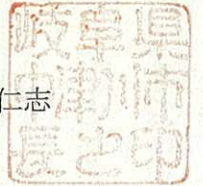 仁志
岐阜県
中津川市
長之印